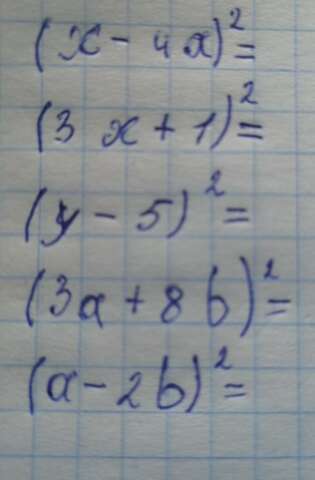 (x - 4a)² =
(3x + 1)² =
(y - 5)² =
(3a + 8b)² =
(a - 2b)² =